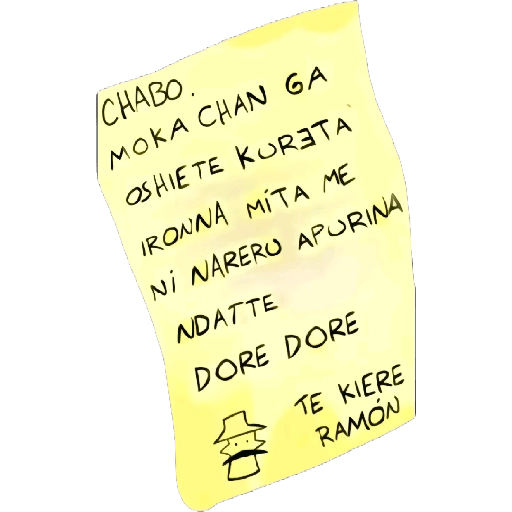 CHABO.
MOKA CHAN GA
OSHIETE KURETA
IRONNA MiTA ME
Ni NARERU APURINA
NDATTE
DORE DORE
TE KIERE
RAMÓN